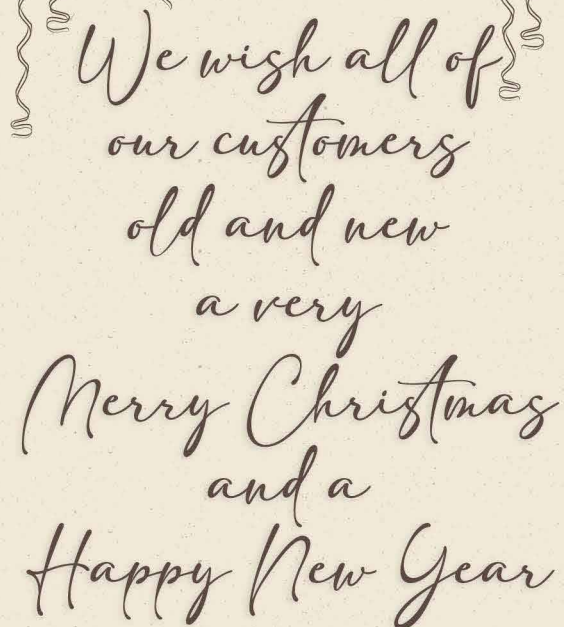 We wish all of
our customers
old and new
a very
Merry Christmas
and a
Happy New Year